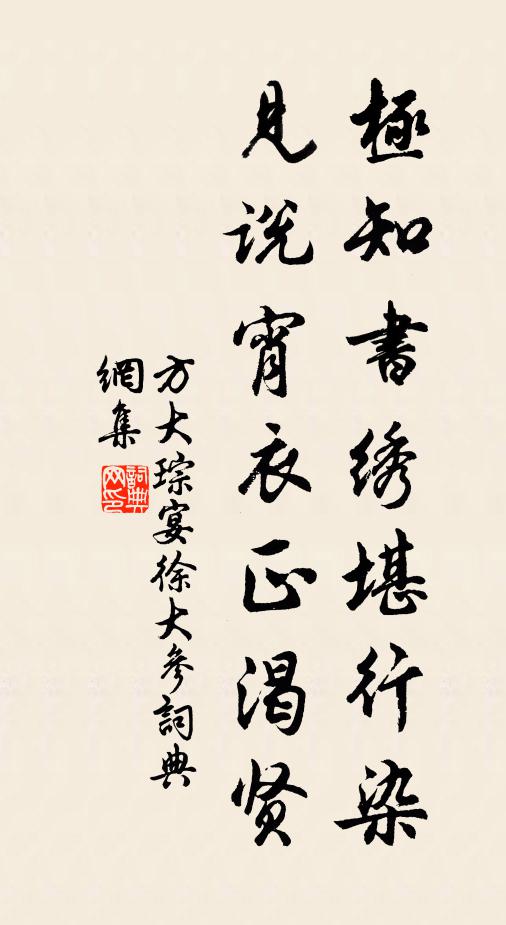 極知書綉堪行染
見説宵衣正渴贤
方大琮宴徐大參詞典
網集
詞典
网印